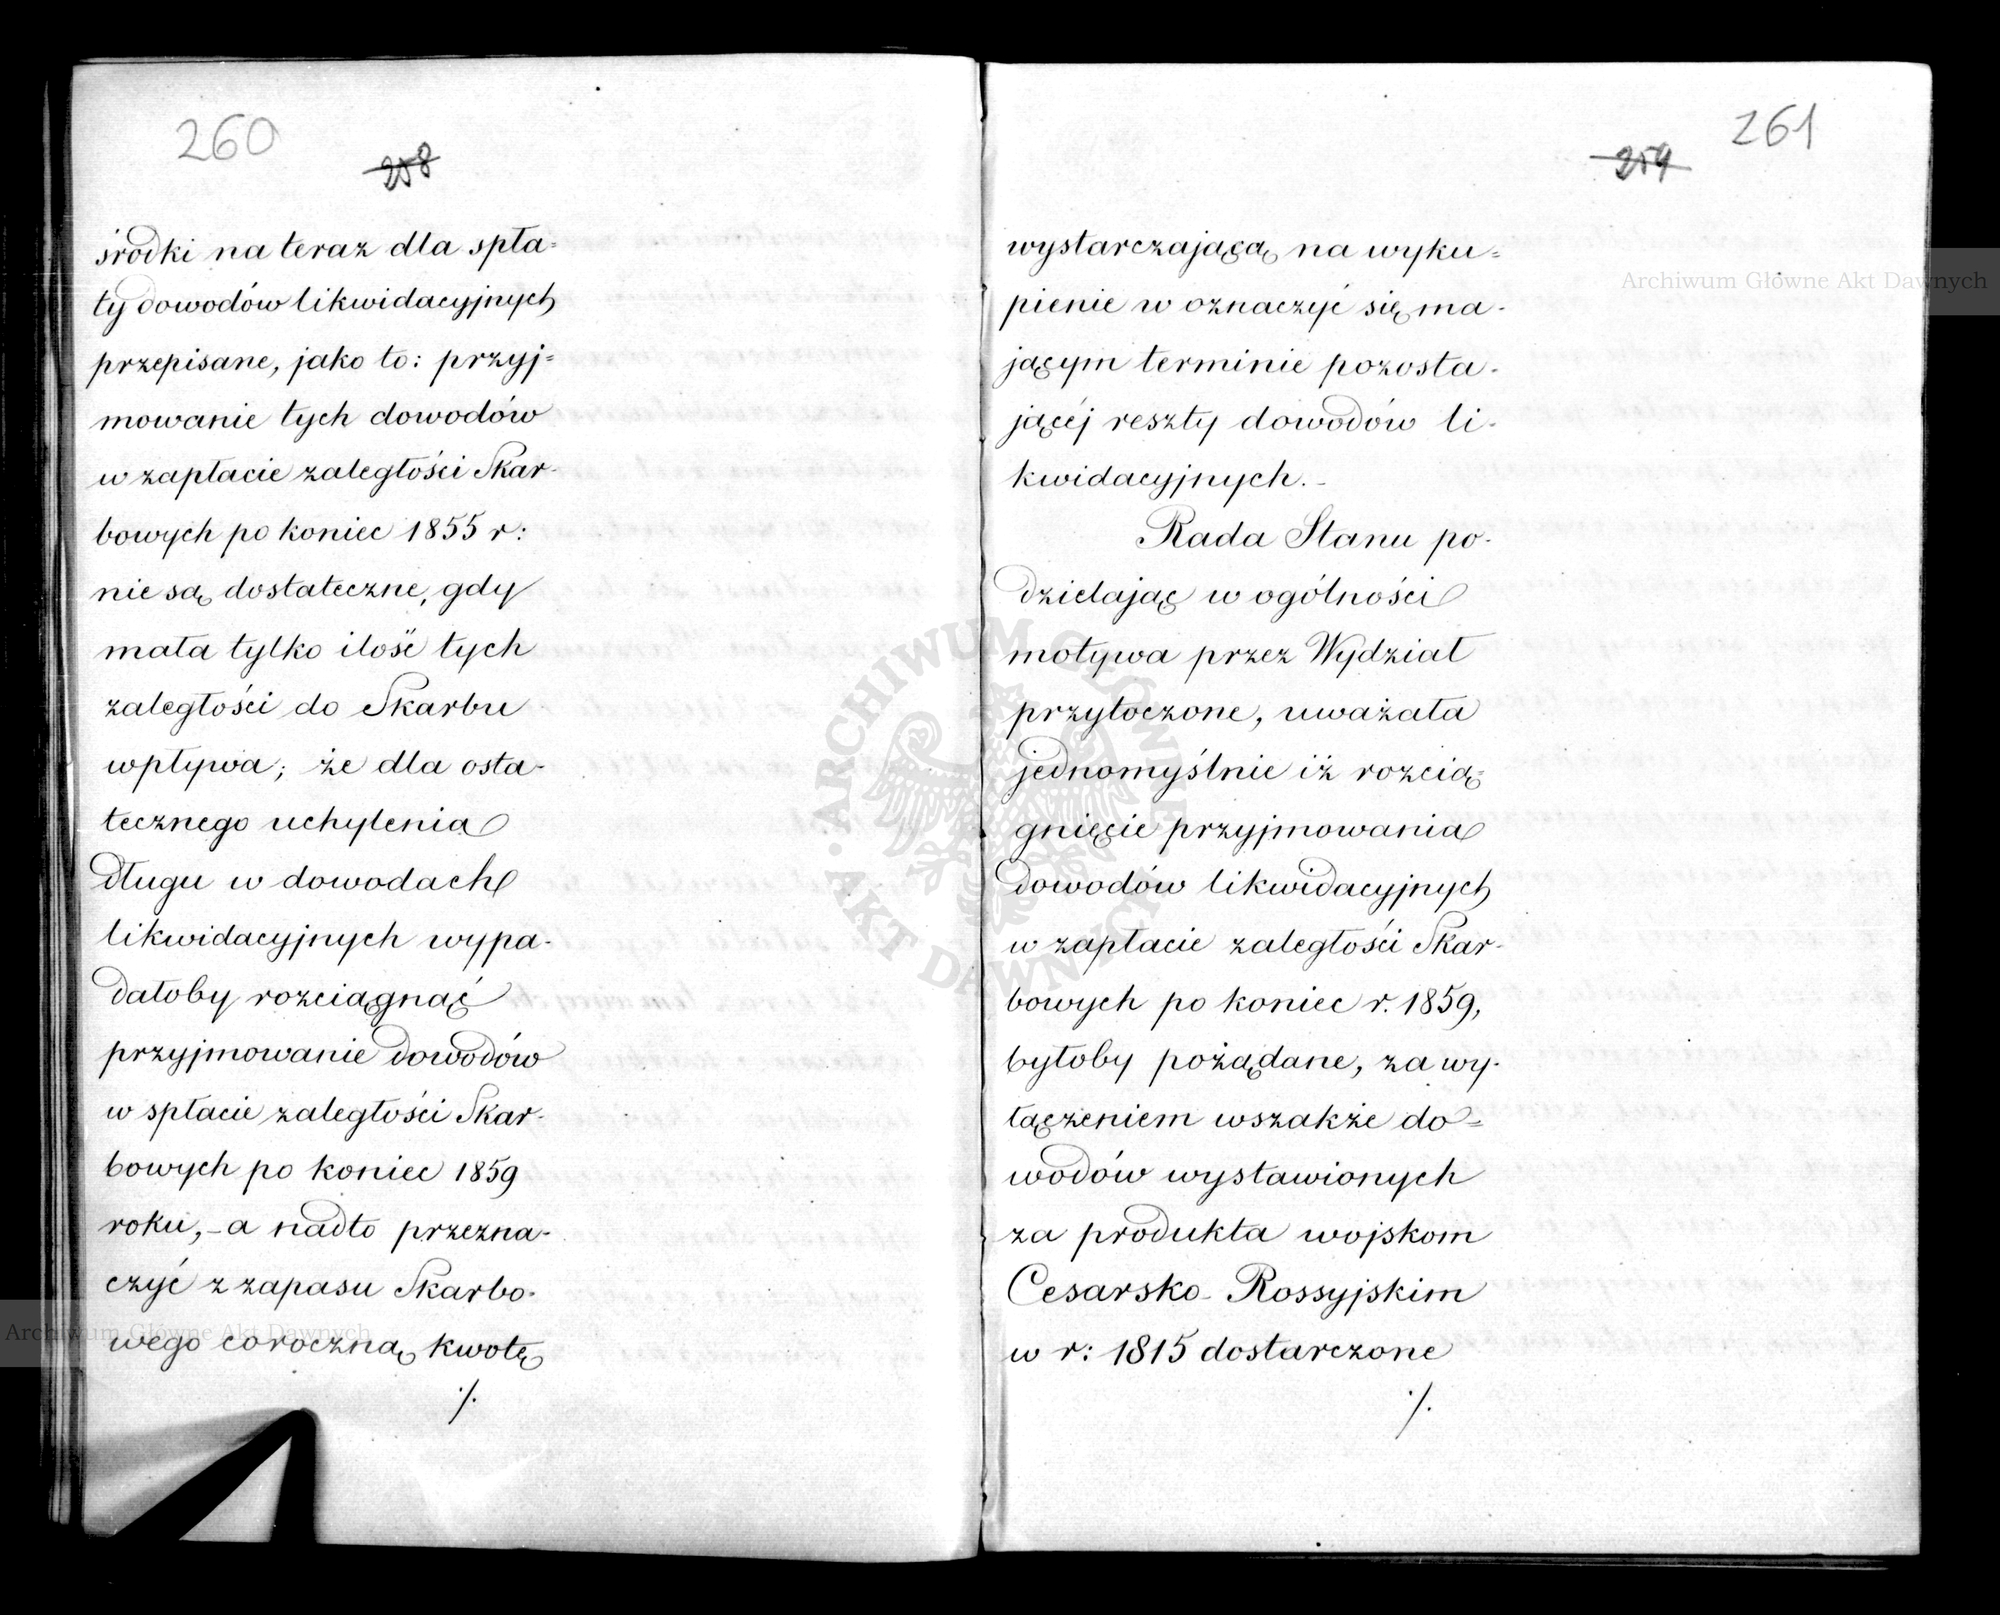 260
258
środki na teraz dla spła=
ty dowodów likwidacyjnych
przepisane, jako to: przyj=
mowanie tych dowodów
w zapłacie zaległości Skar-
bowych po koniec 1855 r:
nie są dostateczne, gdy
mała tylko ilość tych
zaległości do Skarbu
wpływa; że dla osta-
tecznego uchylenia
długu w dowodach
likwidacyjnych wypa-
dałoby rozciągnąć
przyjmowanie dowodów
w spłacie zaległości Skar-
bowych po koniec 1859
roku, - a nadto przezna-
czyć z zapasu Skarbo-
wego coroczną kwotę
./.
261
259
wystarczającą na wyku=
pienie w oznaczyć się ma-
jącym terminie pozosta-
jącéj reszty dowodów li-
kwidacyjnych. -
Rada Stanu po-
dzielając w ogólności
motywa przez Wydział
przytoczone, uważała
jednomyślnie iż rozcią=
gnięcie przyjmowania
dowodów likwidacyjnych
w zapłacie zaległości Skar-
bowych po koniec r. 1859,
byłoby pożądane, za wy-
łączeniem wszakże do=
wodów wystawionych
za produkta wojskom
Cesarsko-Rossyjskim
w r: 1815 dostarczone
./.
Archiwum Główne Akt Dawnych
Archiwum Główne Akt Dawnych
ARCHIWUM GŁÓWNE · AKT DAWNYCH ·